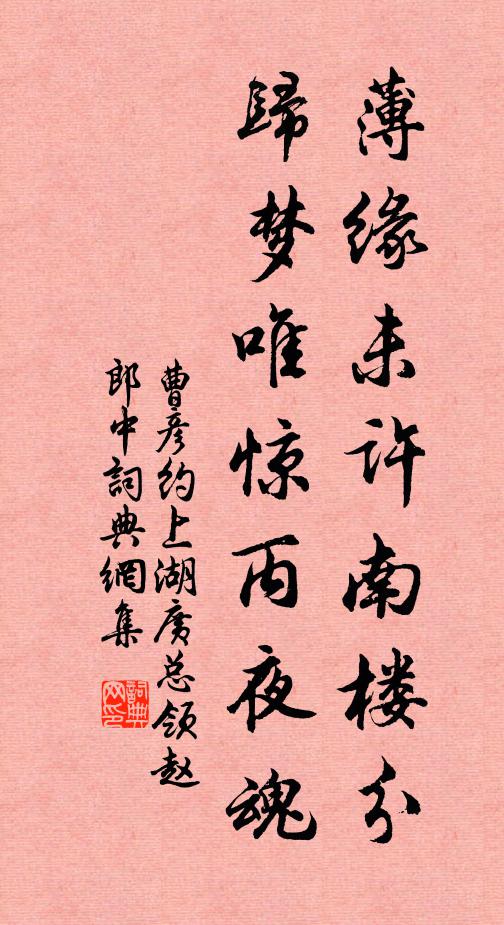 薄缘未许南楼分
歸梦唯惊丙夜魂
曹彦约上湖广总领赵
郎中詞典網集
詞典
网印